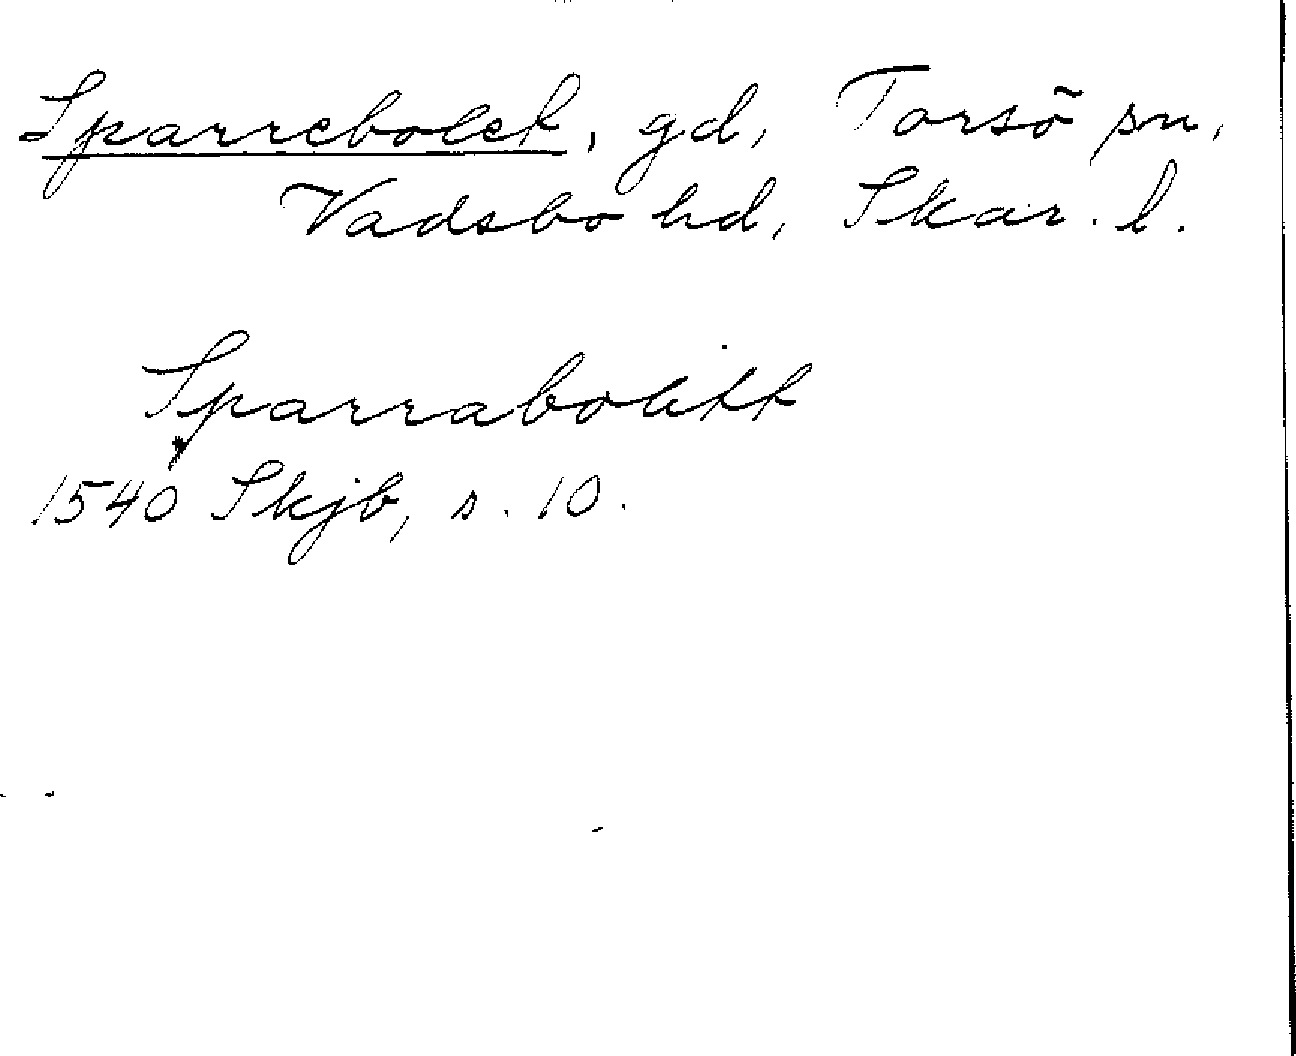 Sparrebolet, gd, Torsö sn,
Vadsbo hd, Skar. l.
Sparrabolitt
1540 Skjb, s. 10.